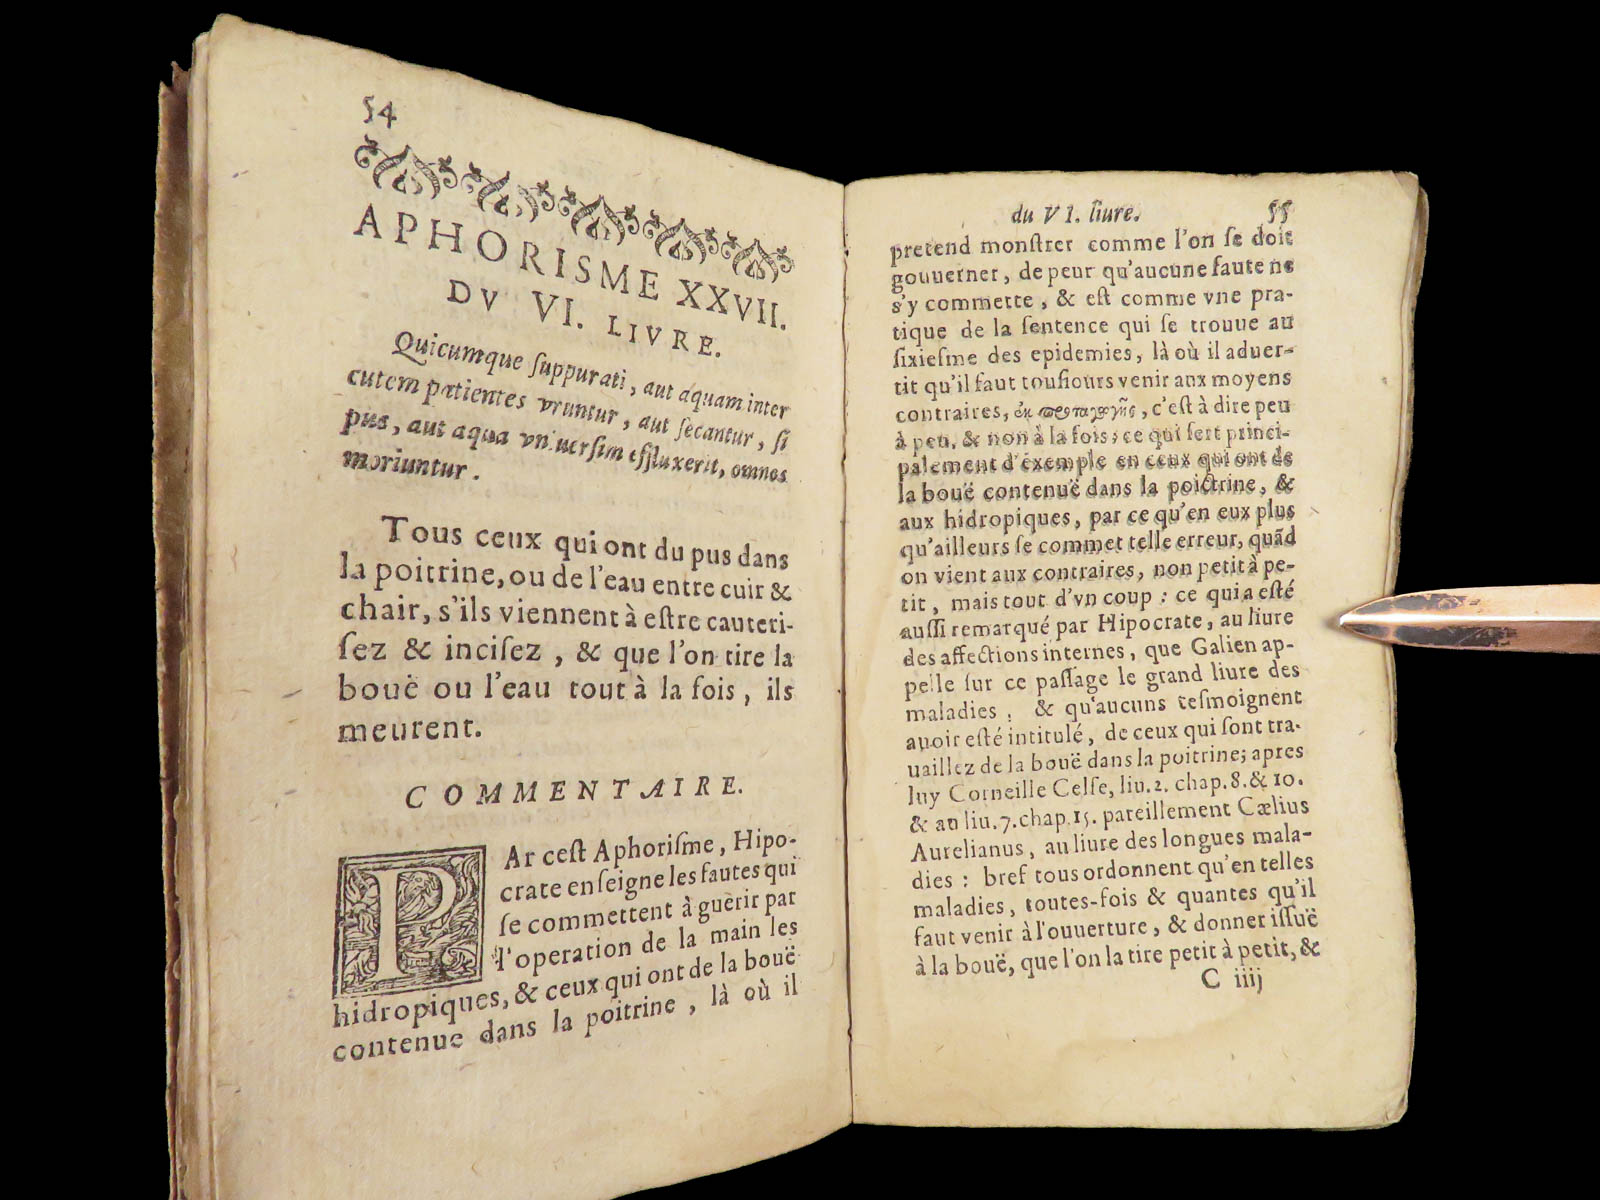 54
APHORISME XXVII.
DV VI. LIVRE.
Quicumque ſuppurati, aut aquam inter
cutem patientes vruntur, aut ſecantur, ſi
pus, aut aqua vniuerſim effluxerit, omnes
moriuntur.
Tous ceux qui ont du pus dans
la poitrine, ou de l'eau entre cuir &
chair, s'ils viennent à eſtre cauteri-
ſez & inciſez, & que l'on tire la
bouë ou l'eau tout à la fois, ils
meurent.
COMMENTAIRE.
PAr ceſt Aphoriſme, Hipo-
crate enſeigne les fautes qui
ſe commettent à guerir par
l'operation de la main les
hidropiques, & ceux qui ont de la bouë
contenue dans la poitrine, là où il
du VI. liure. 55
pretend monſtrer comme l'on ſe doit
gouuerner, de peur qu'aucune faute ne
s'y commette, & eſt comme vne pra-
tique de la ſentence qui ſe trouue au
ſixieſme des epidemies, là où il aduer-
tit qu'il faut touſiours venir aux moyens
contraires, c'eſt à dire peu
à peu, & non à la fois: ce qui ſert princi-
palement d'exemple en ceux qui ont de
la bouë contenuë dans la poictrine, &
aux hidropiques, par ce qu'en eux plus
qu'ailleurs ſe commet telle erreur, quãd
on vient aux contraires, non petit à pe-
tit, mais tout d'vn coup: ce qui a eſté
auſſi remarqué par Hipocrate, au liure
des affections internes, que Galien ap-
pelle ſur ce paſſage le grand liure des
maladies, & qu'aucuns teſmoignent
auoir eſté intitulé, de ceux qui ſont tra-
uaillez de la bouë dans la poitrine; apres
luy Corneille Celſe, liu. 2. chap. 8. & 10.
& au liu. 7. chap. 15. pareillement Cælius
Aurelianus, au liure des longues mala-
dies: bref tous ordonnent qu'en telles
maladies, toutes-fois & quantes qu'il
faut venir à l'ouuerture, & donner iſſuë
à la bouë, que l'on la tire petit à petit, &
C iiij